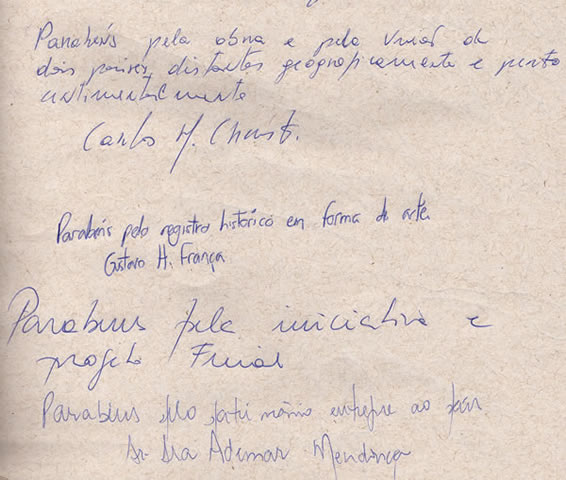 Parabéns pela obra e pela visão de
dois países distantes geograficamente e perto
sentimentalmente
Carlos H. Christ.
Parabéns pelo registro histórico em forma de arte.
Gustavo H. França
Parabens pela iniciativa e
projeto
Parabéns pelo patrimônio entregue ao
Ademar Mendonça